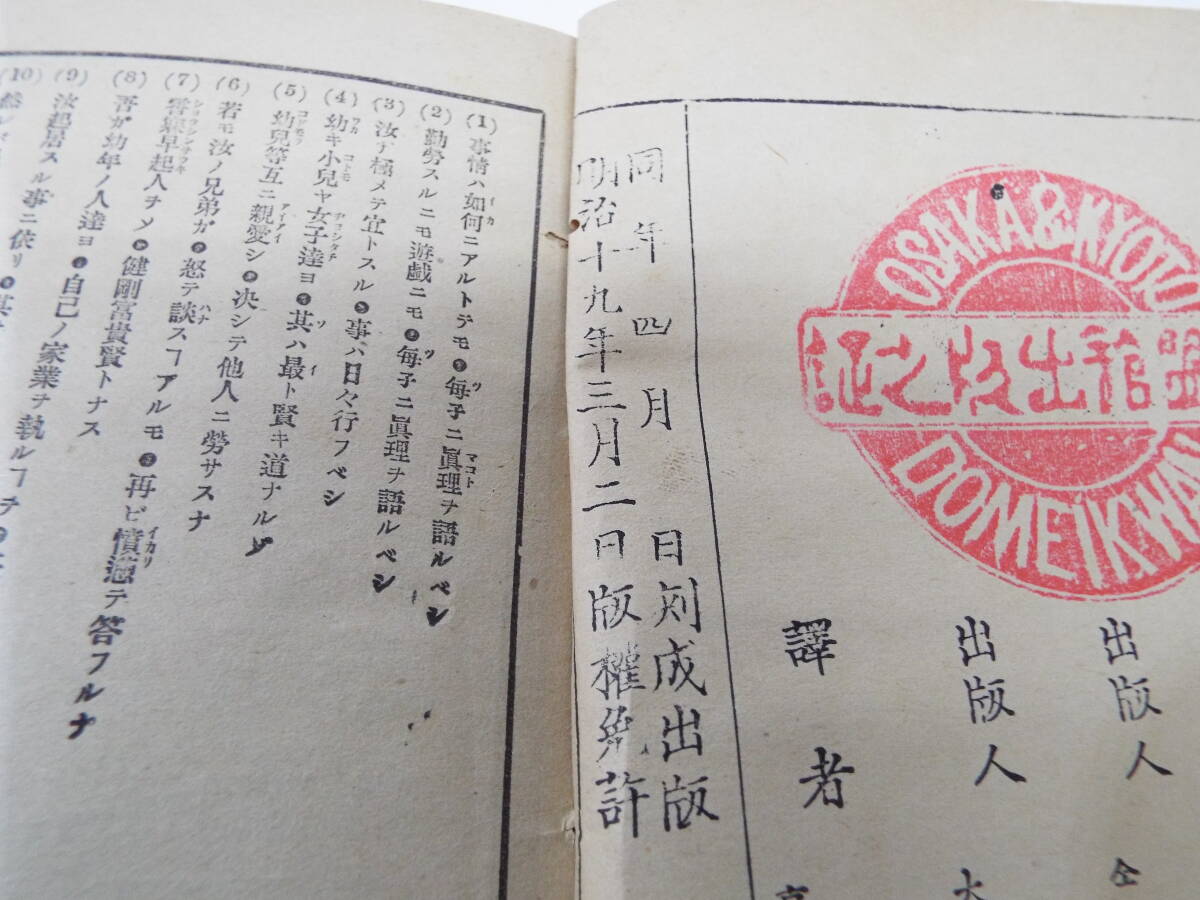 明治十九年三月二日版權免許
同年四月 日刻成出版
譯者
出版人
出版人
OSAKA & KYOTO
館出版之証
DOMEIKWA
(1) 事情ハ如何ニアルトテモ 毎子ニ眞理ヲ語ルベシ
(2) 勤勞スルニモ遊戯ニモ 毎子ニ眞理ヲ語ルベシ
(3) 汝ヂ極メテ宜トスル 事ハ日々行フベシ
(4) 幼キ小兒ヤ女子達ヨ 其ハ最ト賢キ道ナルゾ
(5) 幼兒等互ニ親愛シ 決シテ他人ニ勞サスナ
(6) 若モ汝ノ兄弟ガ 怒テ談スヿアルモ 再ビ憤懣テ答フルナ
(7) 早起人ヲメ 健剛富貴賢トナス
(8) 吾ガ幼年ノ人達ヨ 自己ノ家業ヲ執ルヿヲ
(9) 汝起居スル事ニ依リ
(10)